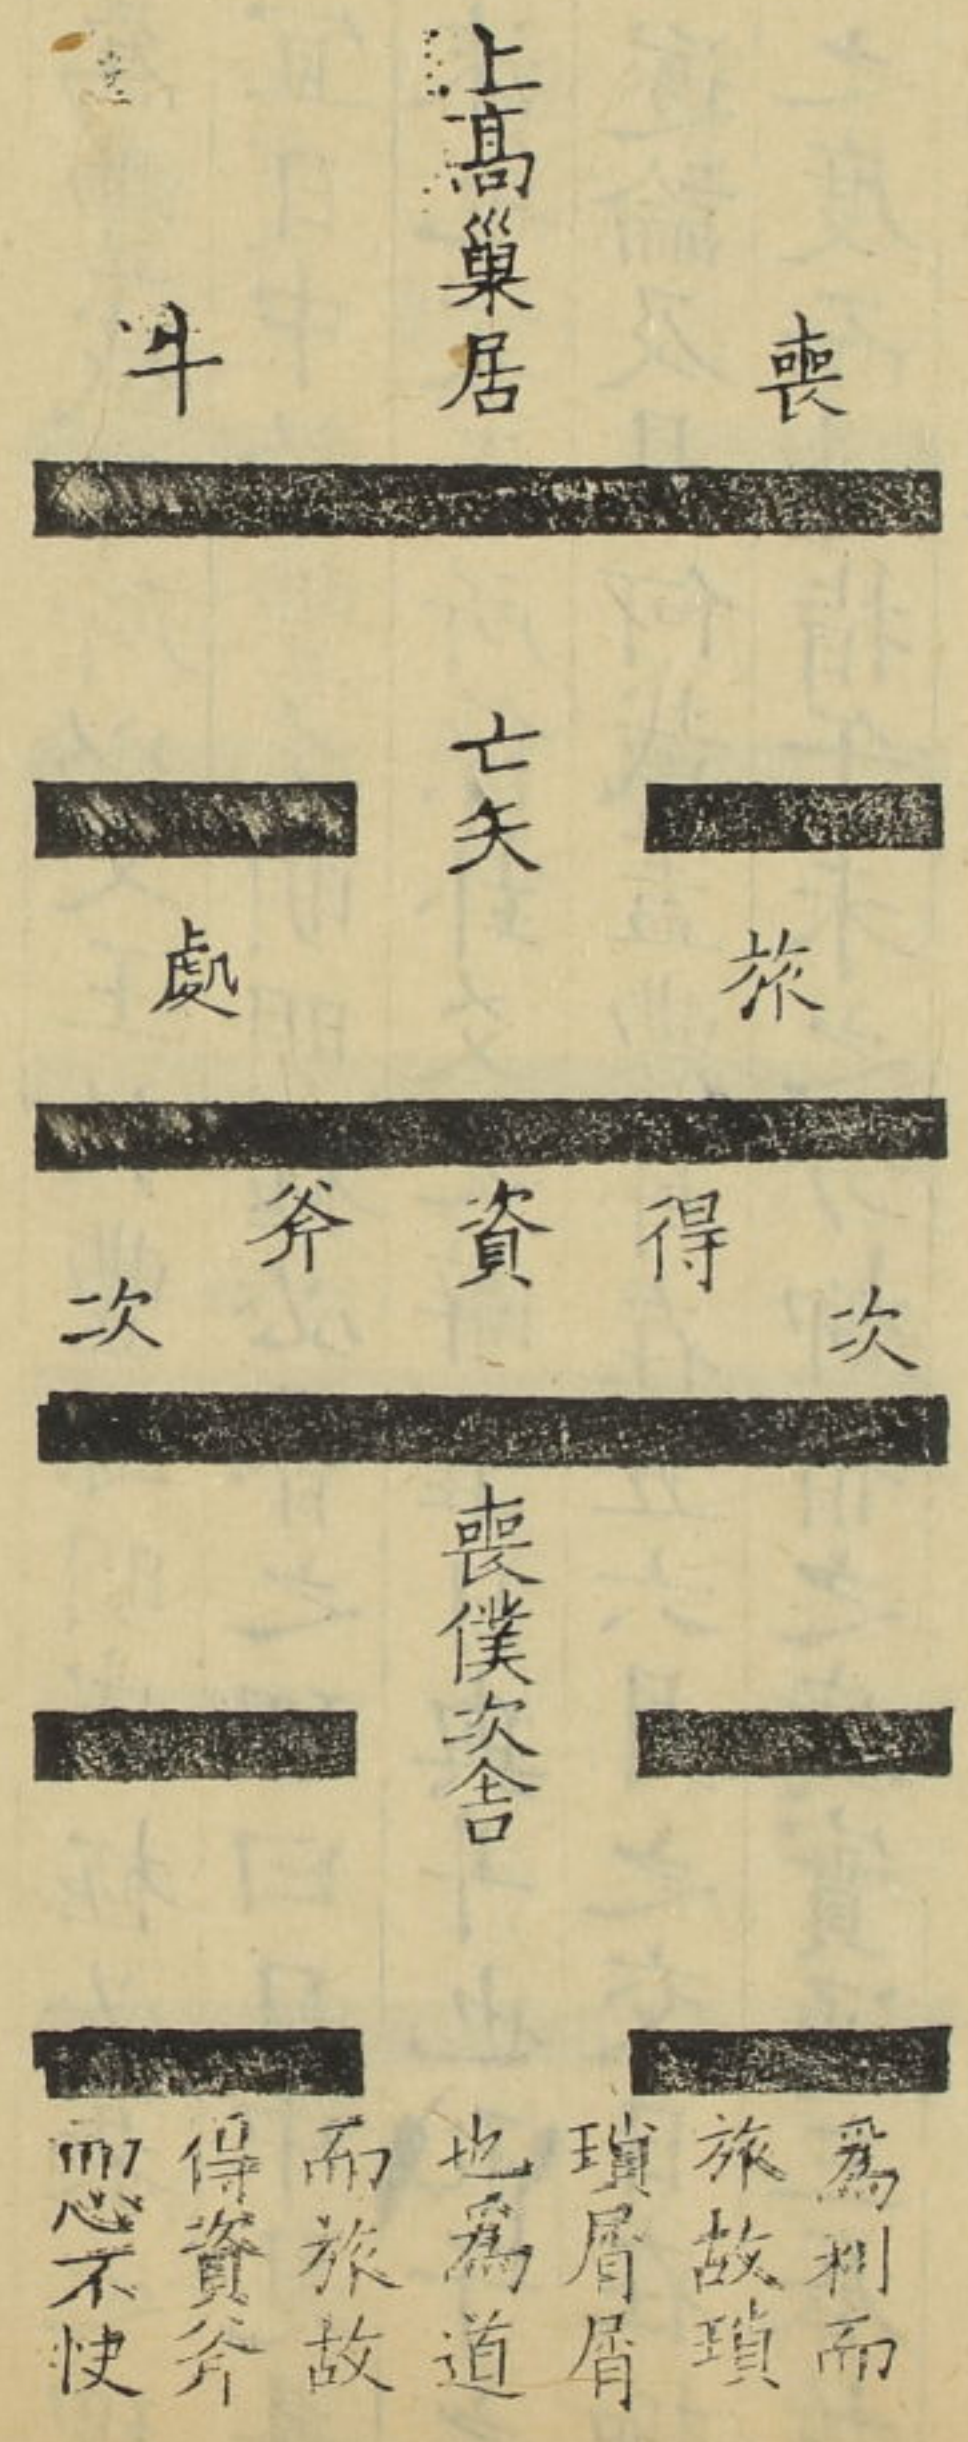 上高巢居
喪
牛
亡矢
旅
處
得
資
斧
次
次
喪僕次舍
爲利而
旅故瑣
瑣屑屑
也爲道
而旅故
得資斧
而心不快